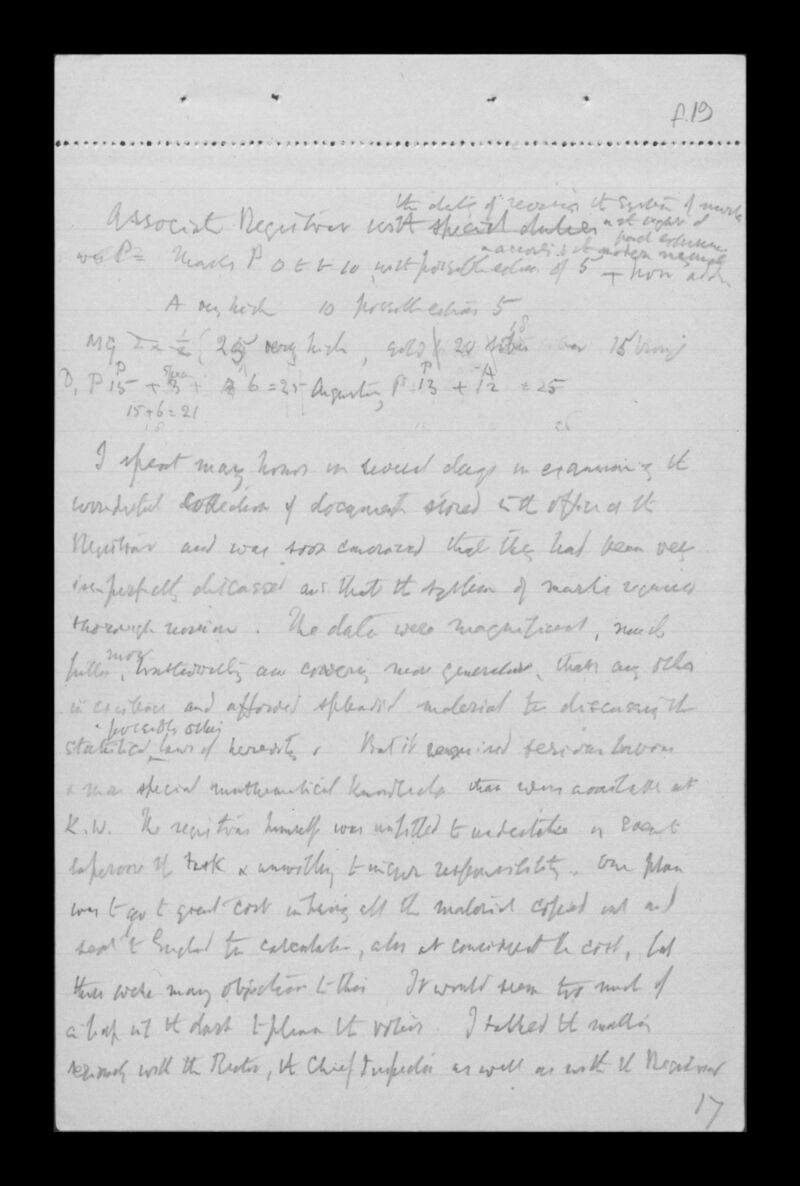 f.19
the duty of revising the system of marks
Associate Registrar with special duties
Marks P 0 to 10, with possible of 5 + non
A very high 10 possible 5
MQ very high, gold 20 silver 15
D, P 15 + 3 + 6 = 25 Augustin, P 13 + 12 = 25
15+6=21
I spent many hours on several days in examining the
wonderful collection of documents stored in the office of the
Registrar and was soon convinced that they had been very
imperfectly discussed and that the system of marks required
thorough revision. The data were magnificent, much
fuller, more trustworthy and covering more generations, than any other
in existence and afforded splendid material for discussing the
& possible other
statistical laws of heredity. But it required serious labour
& more special mathematical knowledge than were available at
K.W. The registrar himself was unfitted to undertake or even to
supervise the task & unwilling to incur responsibility. One plan
was to go to great cost in having all the material copied out and
sent to England for calculation, also at considerable cost, but
there were many objections to this It would seem too much of
a leap in the dark to please the voters. I talked the matter
seriously with the Rector, the Chief Inspector as well as with the Registrar
17